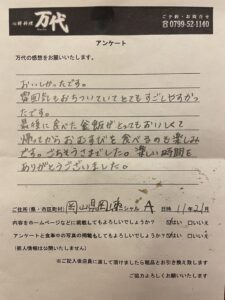 心鮮料理 万代
ご予約・お問合せ
☎0799-52-1140
アンケート
万代の感想をお願いいたします。
おいしかったです。
雰囲気もおちついていてとてもすごしやすかっ
たです。
最後に食べた釜飯がとってもおいしくて
帰ってからおむすびを食べるのも楽しみ
です。ごちそうさまでした。楽しい時間を
ありがとうございました。
ご住所(県・市区町村) 岡山県岡山市 イニシャル A 日付 11年2月
内容をホームページなどに掲載してもよろしいでしょうか? ☑はい □いいえ
アンケートと食事中の写真の掲載もしてもよろしいでしょうか? ☑はい □いいえ
(個人情報は公開いたしません)
※ご記入後店員に渡して頂けましたら粗品とお引き換え致します
ご協力よろしくお願いいたします